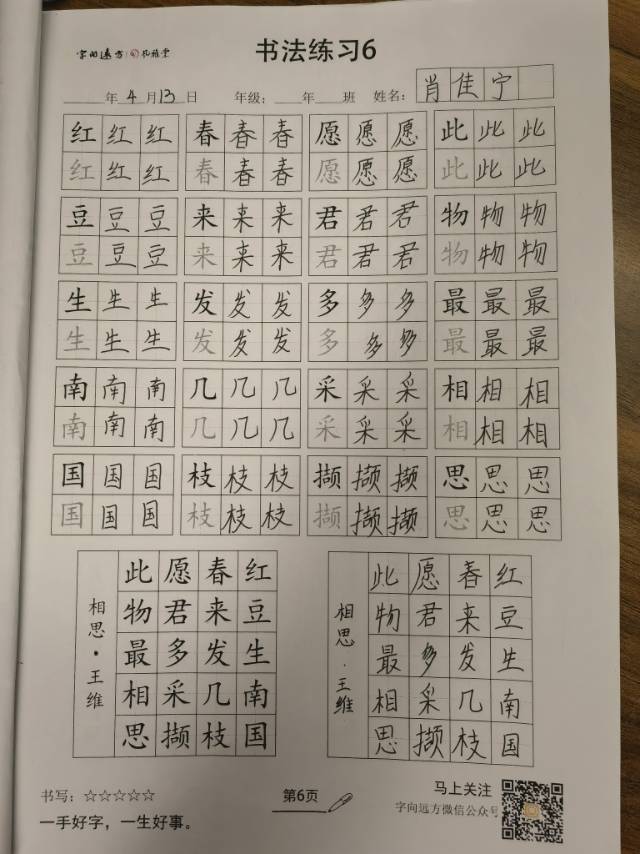 字向远方 孔雅堂
书法练习6
年 4 月 13 日 年级: 年 班 姓名: 肖佳宁
红红红 春春春 愿愿愿 此此此
红红红 春春春 愿愿愿 此此此
豆豆豆 来来来 君君君 物物物
豆豆豆 来来来 君君君 物物物
生生生 发发发 多多多 最最最
生生生 发发发 多多多 最最最
南南南 几几几 采采采 相相相
南南南 几几几 采采采 相相相
国国国 枝枝枝 撷撷撷 思思思
国国国 枝枝枝 撷撷撷 思思思
相思·王维
此愿春红
物君来豆
最多发生
相采几南
思撷枝国
相思·王维
此愿春红
物君来豆
最多发生
相采几南
思撷枝国
书写: ☆☆☆☆☆
一手好字，一生好事。
第6页
马上关注
字向远方微信公众号